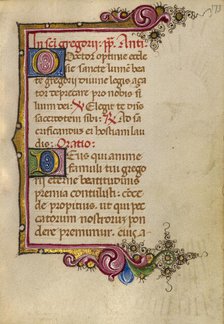 In sci gregorij. pp. Anti.
O Doctor optime eccle
sie sancte lumē be
ate gregori diuine legis ama
tor deprecare pro nobis filiū
dei. V Elegit te dns
sacerdotem sibi. R Ad sa
crificandū ei hostiam lau
dis. Oratio:
Deus qui anime
famuli tui grego
rij eterne beatitudinis
premia contulisti: cōce
de propitius. ut qui pec
catorum nostrorum pon
dere premimur. eius a